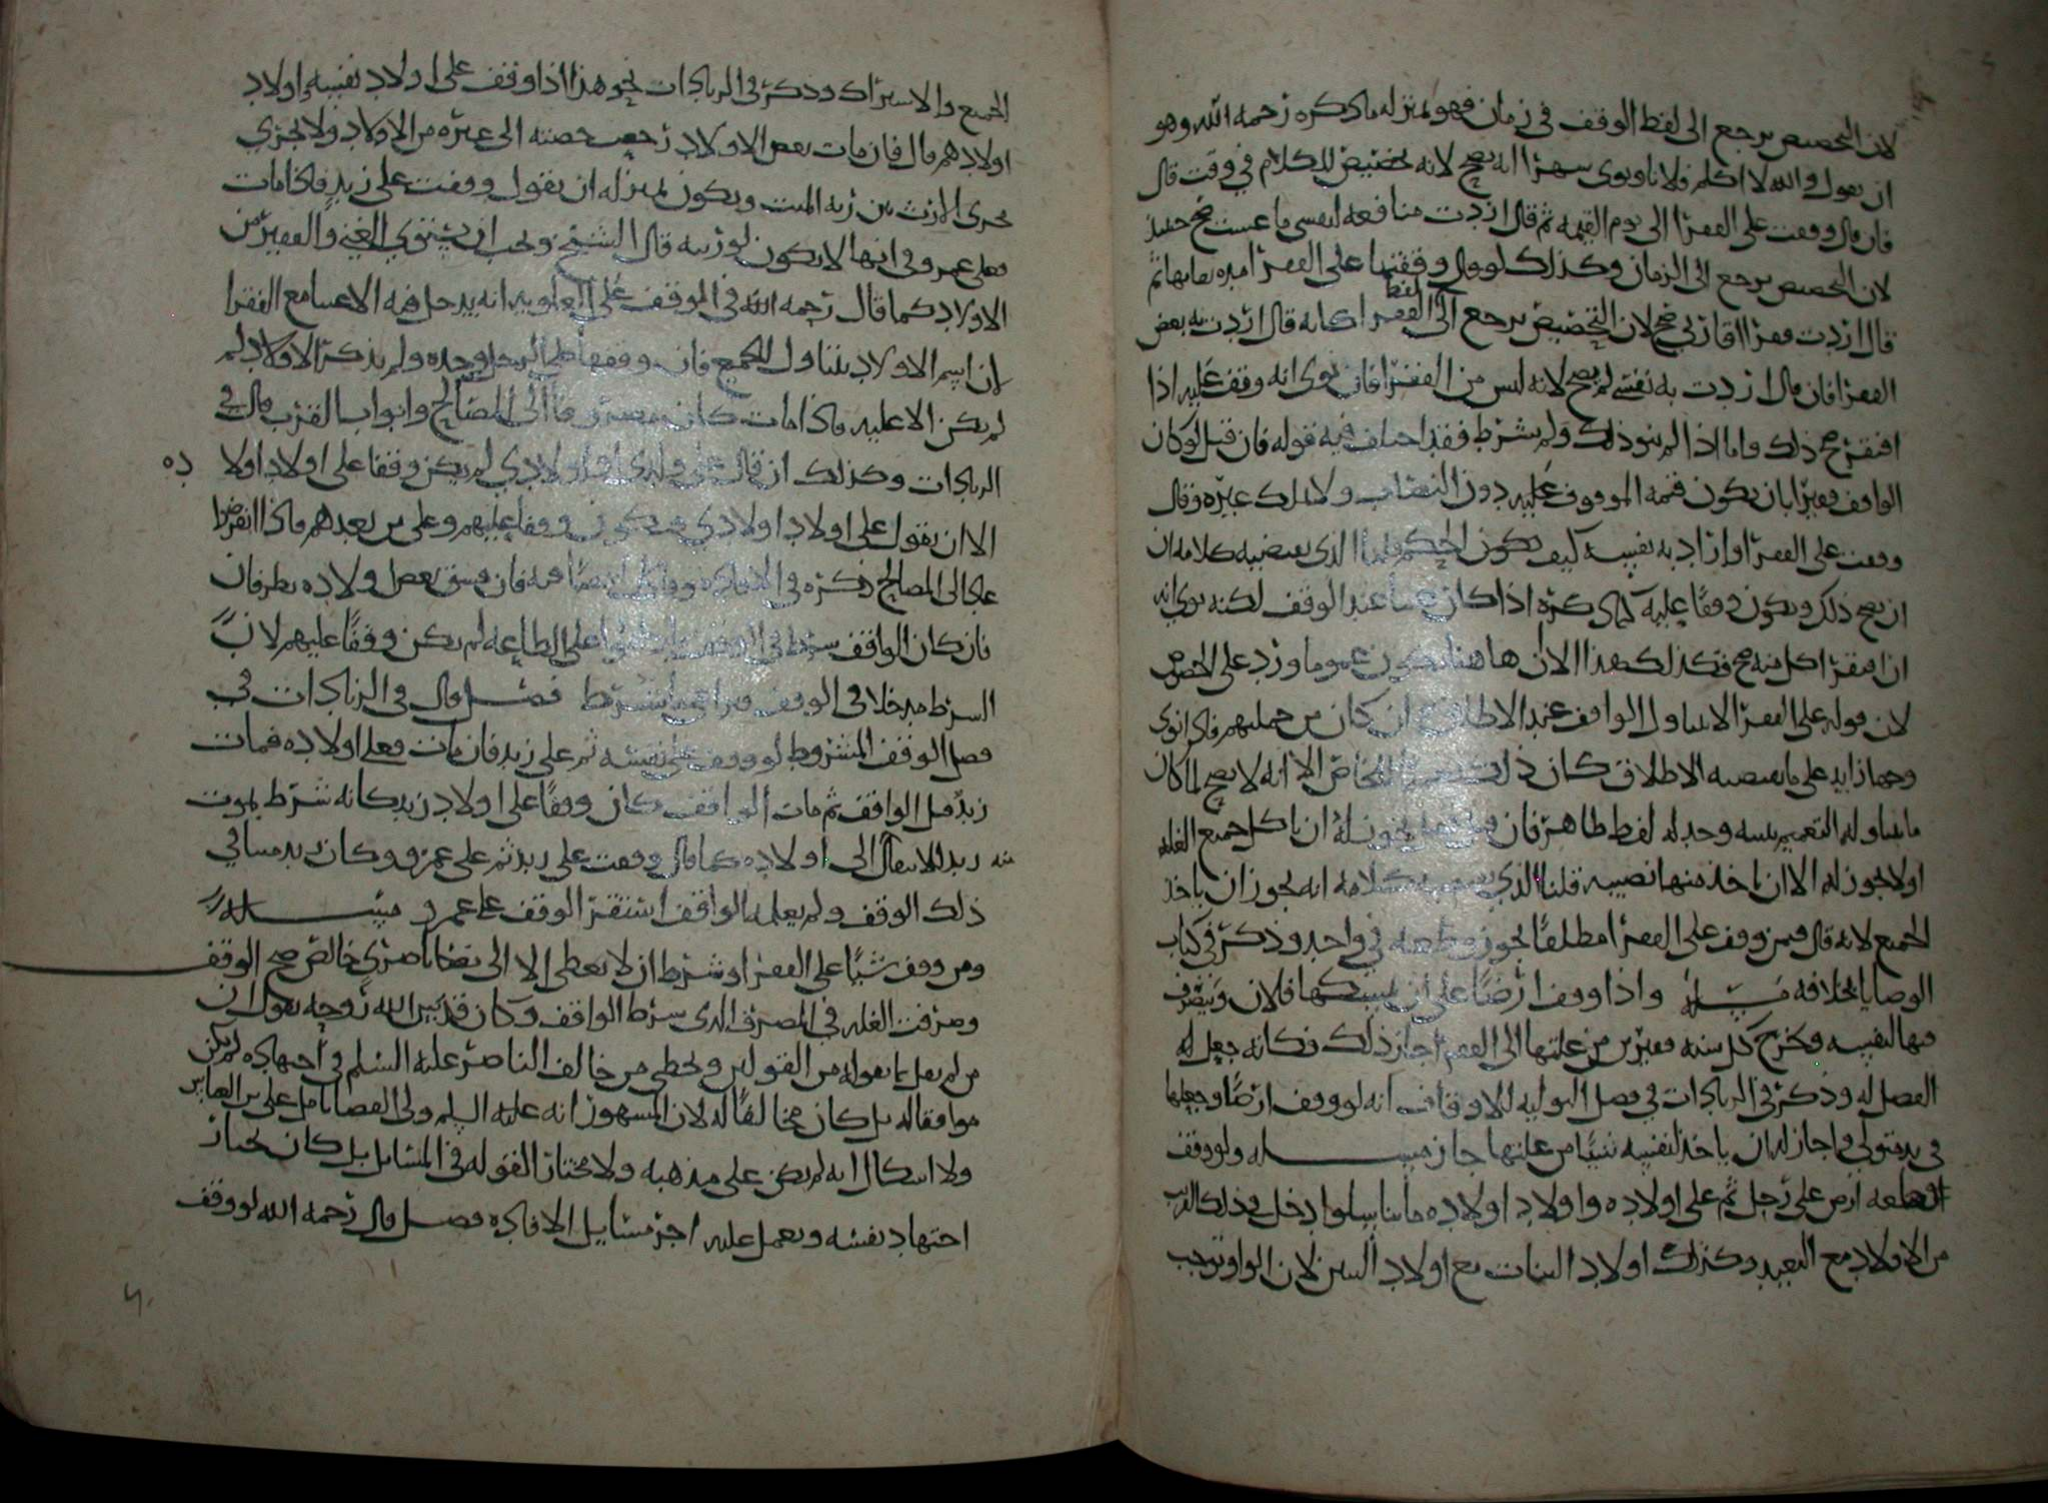 لان التخصيص يرجع الى لفظ الوقف في زمان فهو بمنزله ما ذكره رحمه الله وهو
ان يقول والله لا اكلم فلانا ونوى شهرا انه يصح لانه تخصيص للكلام في وقت قال
فان قال وقفت على الفقرا الى يوم القيمه ثم قال اردت منافعه لنفسي ما عشت صح حينئذ
لان التخصيص يرجع الى الزمان وكذلك لو قال وقفتها على الفقرا ثم
قال اردت فقرا اقاربي صح لان التخصيص يرجع الى لفظ الفقرا كانه قال اردت به بعض
الفقرا فان قال اردت به نفسي لم يصح لانه ليس من الفقرا فان نوى انه وقف عليه اذا
افتقر صح ذلك واما اذا لم ينو ذلك ولم يشرط فقد اختلف فيه قوله فان قيل لو كان
الواقف فقيرا بان يكون قيمه الموقوف عليه دون النصاب ولا يملك غيره وقال
وقفت على الفقرا واراد به نفسه كيف يكون الحكم قلنا الذي يقتضيه كلامه ان
ان يصح ذلك ويكون وقفا عليه كما ذكره اذا كان غنيا عند الوقف لكنه نوى انه
اذا افتقر اكل منه صح فكذلك هذا الا ان هاهنا يكون عموما ورد على الخصوص
لان قوله على الفقرا لا يتناول الواقف عند الاطلاق وان كان من جملتهم فاذا نوى
وجها زايد على ما يقتضيه الاطلاق كان ذلك الخاص الا انه لا يصح لما كان
ما يتناوله التعميم بنيته وحد له لفظ ظاهر فان قيل هل يجوز له ان ياكل جميع الغله
او لا يجوز له الا ان ياخذ منها نصيبه قلنا الذي يقتضيه كلامه انه يجوز ان ياخذ
الجميع لانه قال فيمن وقف على الفقرا مطلقا يجوز وضعه في واحد وذكر في كتاب
الوصايا بخلافه مسله واذا وقف ارضا على ان يمسكها فلان ويتصرف
فيها لنفسه ويخرج كل سنه من غلتها الى الفقرا جاز ذلك فكانه جعل له
الفضل له وذكر في الزيادات في فصل التوليه للاوقاف انه لو وقف ارضا وجعلها
في يد متولي واجاز له ان ياخذ لنفسه شيئا من غلتها جاز مسله ولو وقف
قطعه ارض على رجل ثم على اولاده واولاد اولاده ما تناسلوا دخل في ذلك القريب
من الاولاد مع البعيد وكذلك اولاد البنات مع اولاد البنين لان الواو توجب
الجميع والاشتراك وذكر في الزيادات نحو هذا اذا وقف على اولاد نفسه واولاد
اولادهم قال فان مات بعض الاولاد رجعت حصته الى غيره من الاولاد ولا يجري
مجرى الارث بين ورثه الميت ويكون بمنزله ان يقول وقفت على زيد فاذا مات
فعلى عمرو في انها لا يكون لورثته قال الشيخ ويجب ان يستوي الغني والفقير من
الاولاد كما قال رحمه الله في الموقف على العلويه انه يدخل فيه الاغنيا مع الفقرا
لان اسم الاولاد يتناول الجميع فان وقفها على الرجل وحده ولم يذكر الاولاد لم
لم يكن الا عليه فاذا مات كان مصروفا الى المصالح وابواب القرب قال في
الزيادات وكذلك ان قال على ولدي او اولادي لم يكن وقفا على اولاد اولا ده
الا ان يقول على اولاد اولادي فيكون وقفا عليهم وعلى من بعدهم فاذا انقرضوا
عاد الى المصالح ذكره في الافاده فان فسق بعض اولاده نظر فان
فان كان الواقف شرط في الوقف على الطاعه لم يكن وقفا عليهم لان
الشرط مدخلا في الوقف فصل قال في الزيادات في
فصل الوقف المشروط لو وقف على نفسه ثم على زيد فان مات فعلى اولاده فمات
زيد قبل الواقف ثم مات الواقف كان وقفا على اولاد زيد كانه شرط بموت
زيد الانتقال الى اولاده كما قال وقفت على زيد ثم على عمرو وكان زيد ميتا في
ذلك الوقف ولم يعلمه الواقف استقر الوقف على عمرو مسله
ومن وقف شيئا على الفقرا وشرط ان لا يعطى الا الى ناصري خالص صح الوقف
وصرفت الغله في المصرف الذي شرط الواقف وكان قدس الله روحه يقول ان
من لم يقل بما يقوله من القولين ويخطي من خالف الناصر عليه السلم في اجتهاده لم يكن
موافقا له بل كان مخالفا له لان المشهور انه عليه السلم ولى القضا
ولا اشكال انه لم يكن على مذهبه ولا مختارا لقوله في المسايل بل كان يختار
اجتهاد نفسه ويعمل عليه اجر مسايل الافاده فصل قال رحمه الله لو وقف